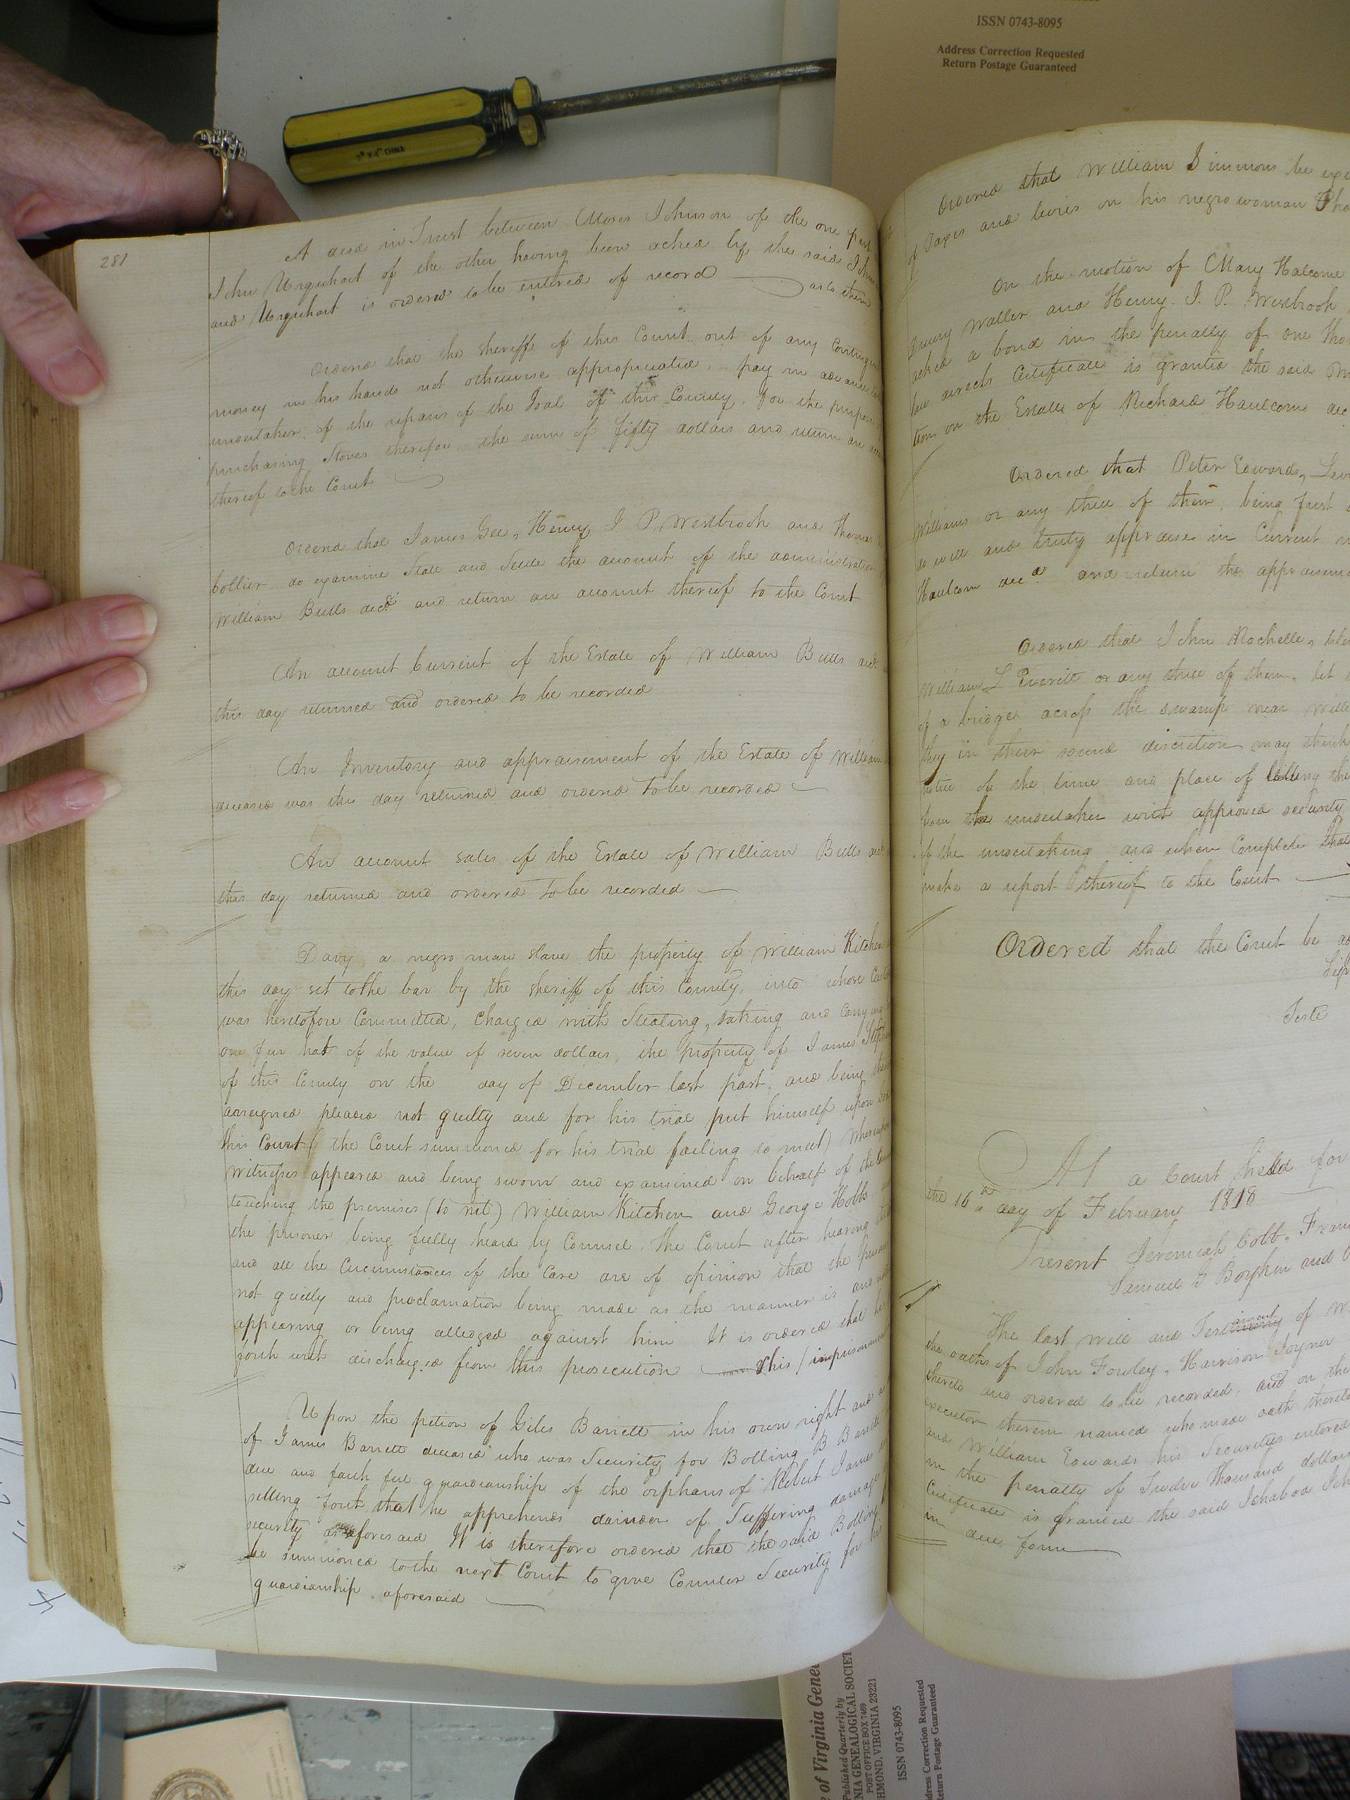 ISSN 0743-8095
Address Correction Requested
Return Postage Guaranteed
281
A deed in Trust between Moses Johnson of the one part
John Urquhart of the other having been acked by the said John
and Urquhart is ordered to be entered of record
Ordered that the sheriff of this Court out of any Contingent
money in his hands not otherwise appropriated, pay in advance to
undertaker of the repairs of the Goal of this County, for the purpose
purchasing Stoves therefor the sum of fifty dollars and return an
thereof to the Court
Ordered that James Gee, Henry J P. Westbrook and Thomas
Collier do examine State and Settle the account of the administration
William Butts decd and return an account thereof to the Court
An account Current of the Estate of William Butts
this day returned and ordered to be recorded
An Inventory and appraisement of the Estate of William
deceased was this day returned and ordered to be recorded
An account sales of the Estate of William Butts
this day returned and ordered to be recorded
Davy a negro man slave the property of William Kitchen
this day set to the bar by the sheriff of this County, into whose
was heretofore Committed, charged with Stealing, taking and carrying
one fur hat of the value of seven dollars, the property of James
of this County on the day of December last past, and being
arraigned pleaded not guilty and for his trial put himself upon
this Court (the Court summoned for his trial failing to meet) Whereupon
witnesses appeared and being sworn and examined on behalf of the
touching the premises (to wit) William Kitchen and George Hobbs
the prisoner being fully heard by Counsel. The Court after hearing
and all the Circumstances of the Case are of opinion that the prisoner
not guilty and proclamation being made as the manner is and
appearing or being alledged against him It is ordered that he
forth with discharged from this prosecution this / imprisonment
Upon the petion of Giles Barrett in his own right and
of James Barrett deceased who was Security for Bolling B Barrett
due and faithful guardianship of the orphans of James
setting forth that he apprehends danger of Suffering damage
security as aforesaid It is therefore ordered that the said Bolling
be summoned to the next Court to give Counter Security for his
guardianship aforesaid
Ordered that William Simmons be
of Taxes and levies on his negro woman
On the motion of Mary Halcome
Drury Waller and Henry J. P. Westbrook
acked a bond in the penalty of one
law directs Certificate is granted the said
tion on the Estate of Richard Haulcome dec
Ordered that Peter Edwards,
Williams or any three of them, being first
do well and truly appraise in Current
Haulcom decd and return the appraisement
Ordered that John Rochelle,
William L Everitt or any three of them, let
of a bridge across the swamp near
they in their sound discretion may think
notice of the time and place of letting the
from the undertaker with approved security
of the undertaking and when Complete
make a report thereof to the Court
Ordered that the Court be
Teste
At a Court held for
the 16th day of February 1818
Present Jeremiah Cobb,
Samuel B Boykin and
The last will and Testament of
the oaths of John Fowley, Harrison Joyner
thereto and ordered to be recorded, and on the
executor therein named who made oath thereto
and William Edwards his Securities entered
in the penalty of Twelve thousand dollars
Certificate is granted the said Ichabod
in due form
of Virginia
Published Quarterly by
GENEALOGICAL SOCIETY
POST OFFICE BOX 7469
RICHMOND, VIRGINIA 23221
ISSN 0743-8095
Address Correction Requested
Return Postage Guaranteed